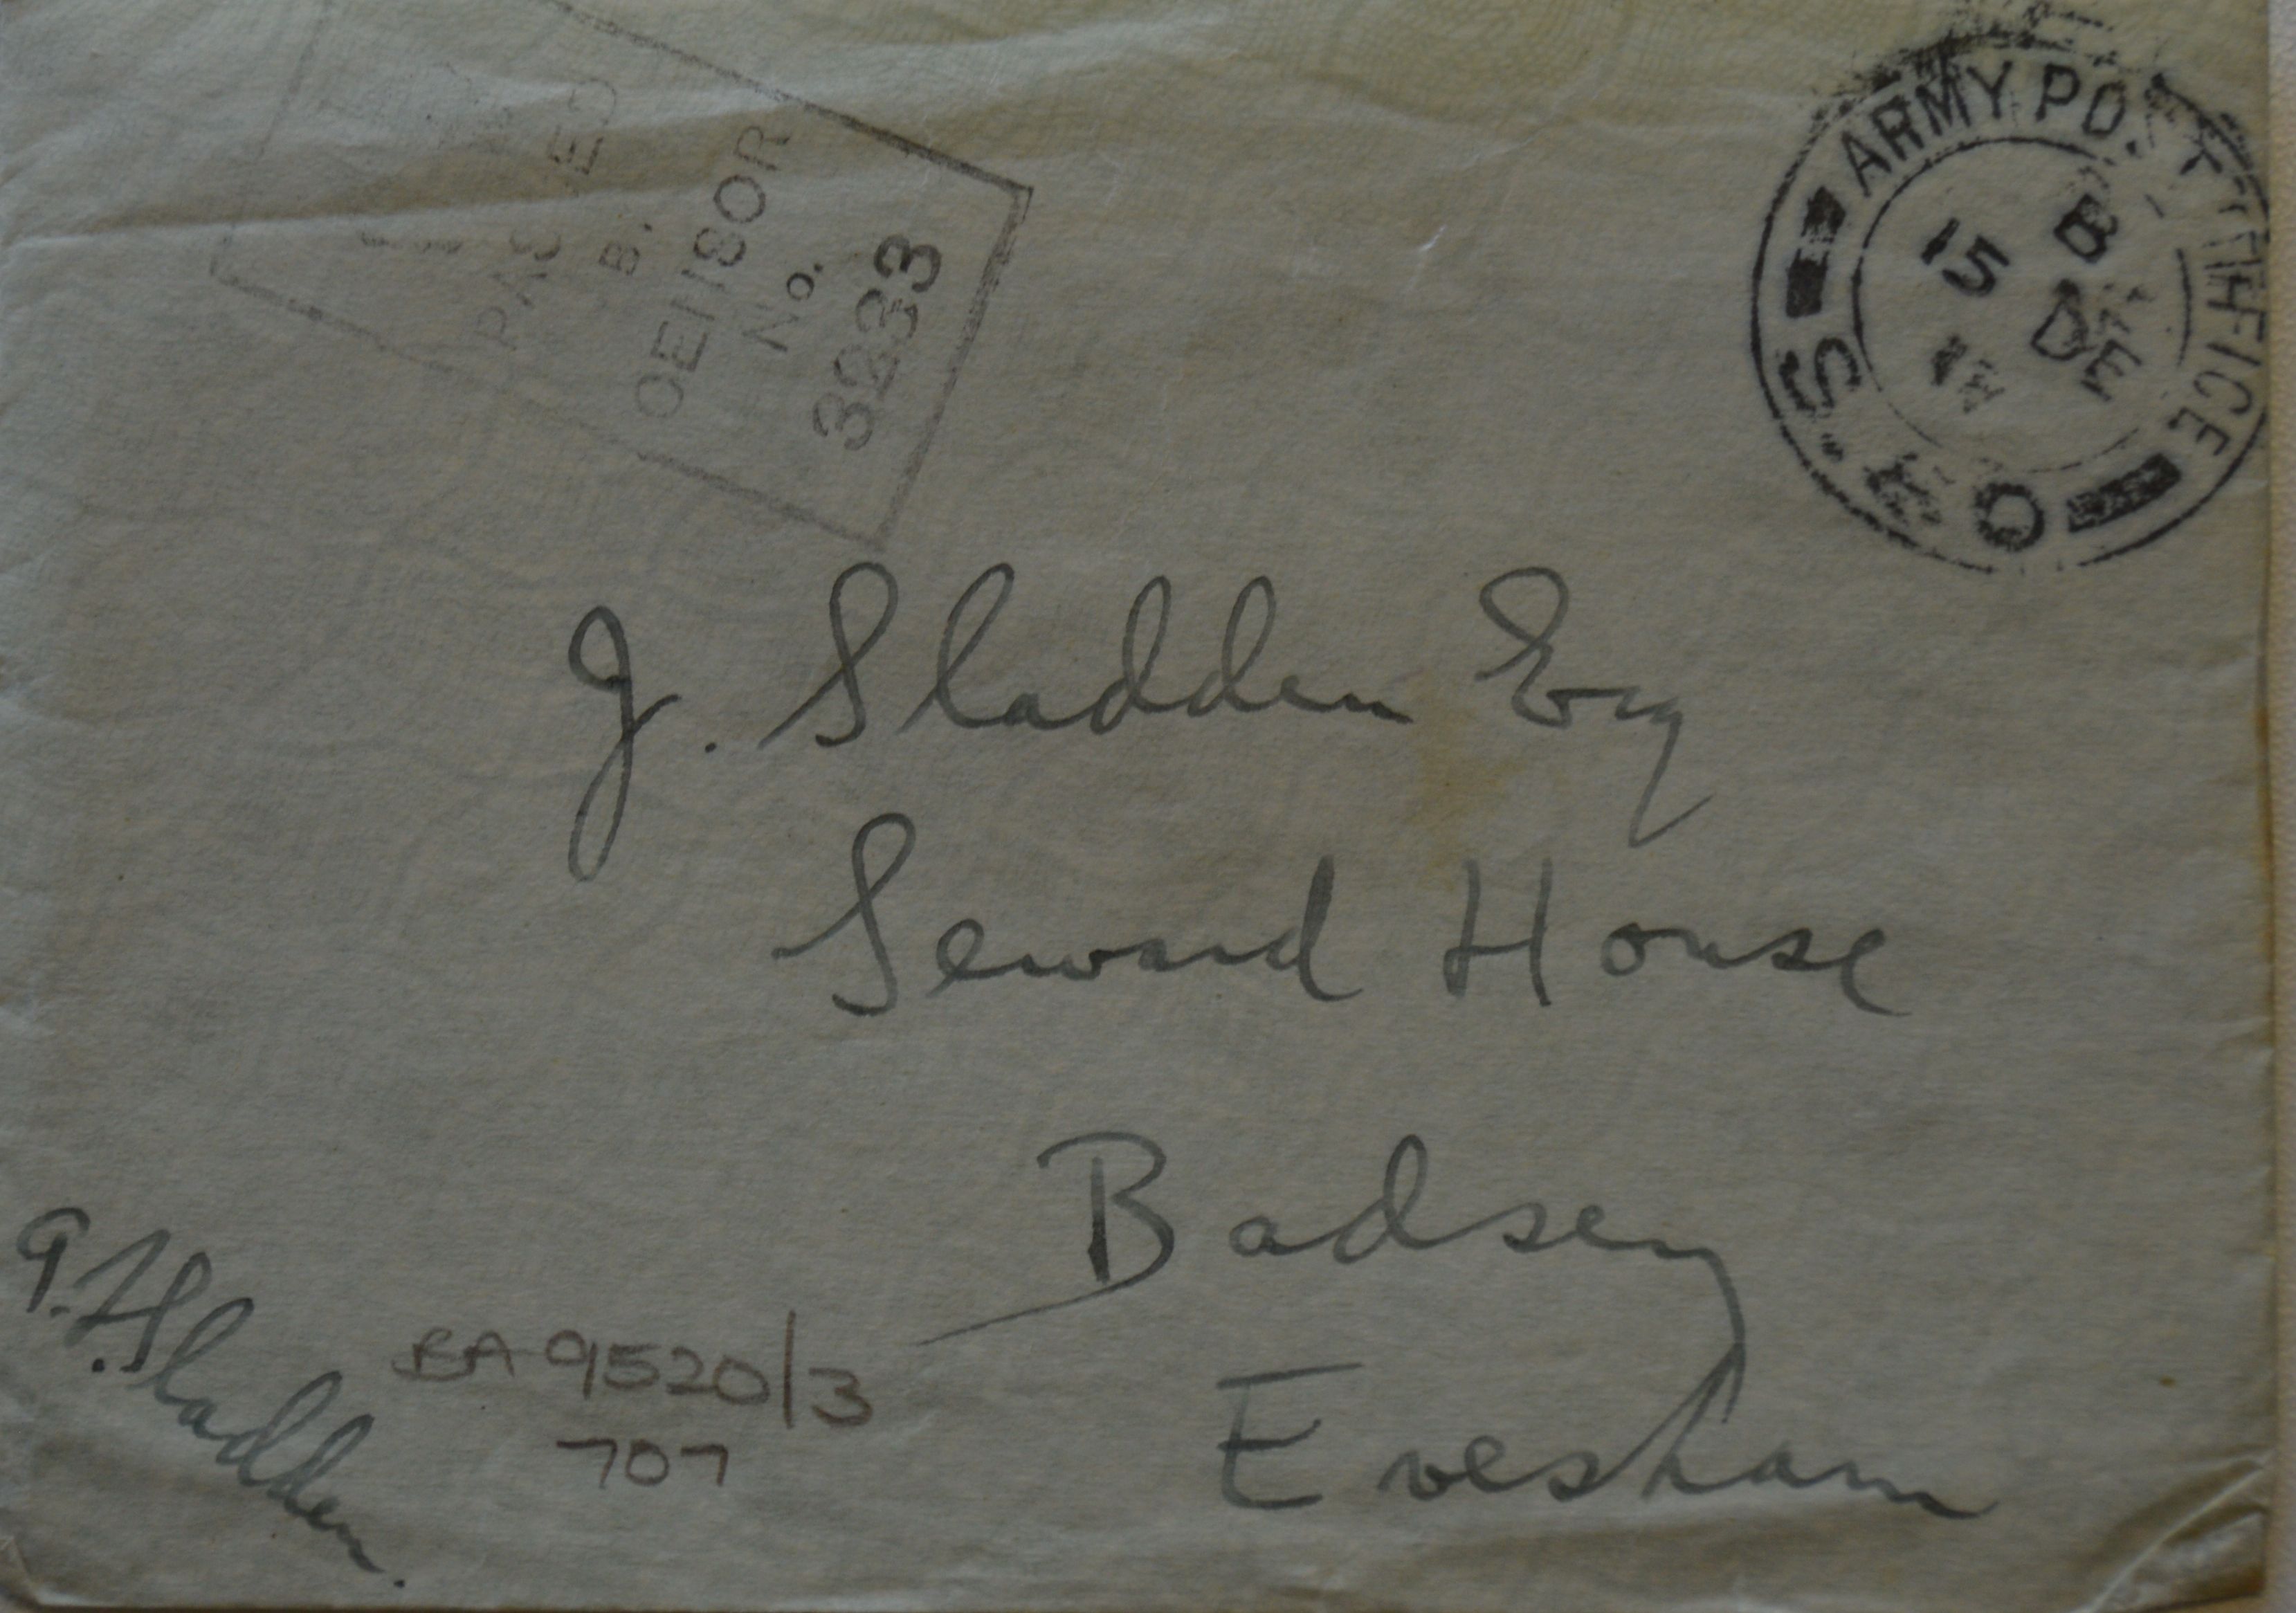 PASSED
BY
CENSOR
No.
3233
ARMY POST OFFICE
B
15 DE
S.A O
J. Sladden Esq
Seward House
Badsey
Evesham
J. Sladden.
BA 9520/3
707